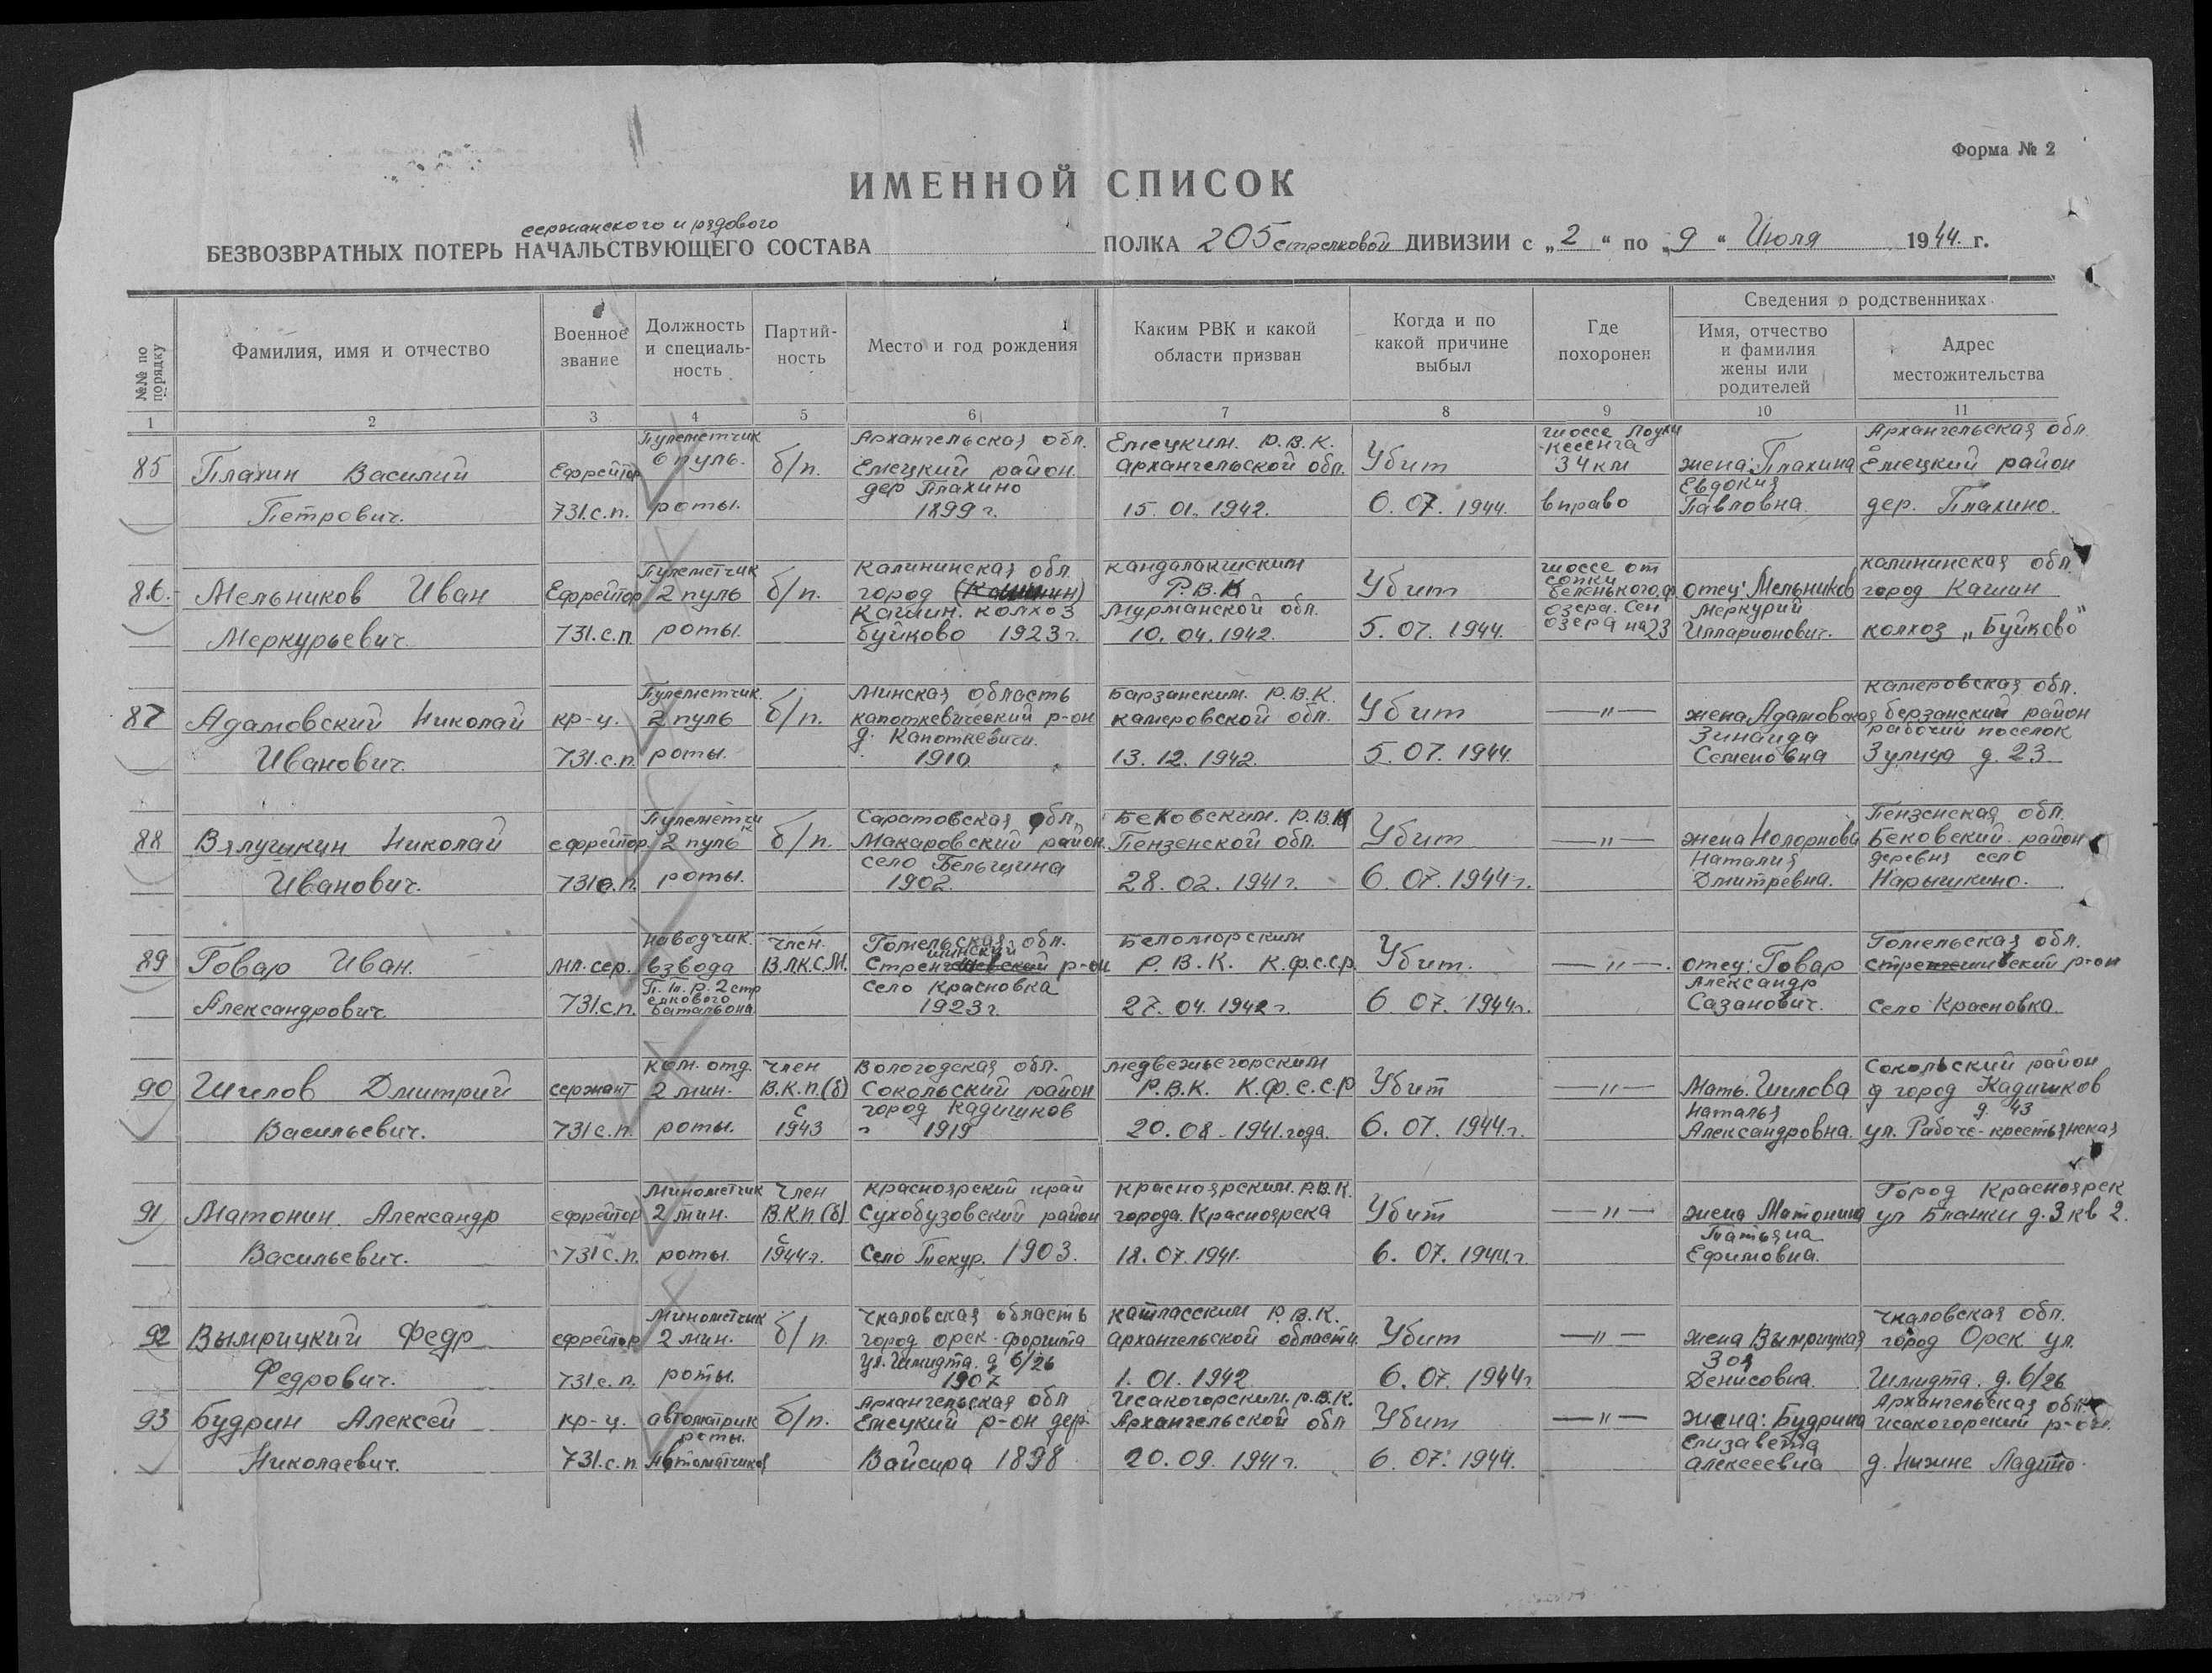 Форма № 2
ИМЕННОЙ СПИСОК
сержанского и рядового
БЕЗВОЗВРАТНЫХ ПОТЕРЬ НАЧАЛЬСТВУЮЩЕГО СОСТАВА ПОЛКА 205 стрелковой ДИВИЗИИ с „2“ по „9“ Июля 1944. г.
№№ по порядку
Фамилия, имя и отчество
Военное звание
Должность и специаль-ность
Партий-ность
Место и год рождения
Каким РВК и какой области призван
Когда и по какой причине выбыл
Где похоронен
Сведения о родственниках
Имя, отчество и фамилия жены или родителей
Адрес местожительства
1 2 3 4 5 6 7 8 9 10 11
Пулеметчик Архангельская обл. Емецким. Р.В.К. шоссе Лоухи Архангельская обл.
85 Плахин Василий Ефрейтор 6 пуль. б/п. Емецкий район Архангельской обл. Убит кесенга 34 км жена: Плахина Емецкий район
дер Плахино Евдокия
Петрович. 731.с.п. роты. 1899 г. 15. 01. 1942. 6. 07. 1944. вправо Павловна. дер. Плахино.
Пулеметчик Калининская обл. Кандалакшским шоссе от калининская обл.
86. Мельников Иван Ефрейтор 2 пуль б/п. город Р.В.К Убит сопки отец: Мельников город Кашин
Кашин. колхоз Мурманской обл. озера. Сен Меркурий
Меркурьевич. 731.с.п роты. Буйково 1923 г. 10. 04. 1942. 5. 07. 1944. озера на 23 Илларионович. колхоз „Буйково"
Пулеметчик. Минская область Барзанским. Р.В.К. Камеровская обл.
87 Адамовский Николай кр-ц. 2 пуль б/п. капоткевический р-он камеровской обл. Убит —"— жена Адамовская берзанский район
д. Капоткевичи. Зинаида рабочий поселок
Иванович. 731.с.п. роты. 1910 13. 12. 1942. 5. 07. 1944. Семеновна 3 улица д. 23.
Пулеметчик Саратовская обл. Бековским. Р.В.К Пензенская обл.
88 Вялушкин Николай ефрейтор 2 пуль б/п. Макаровский район. Пензенской обл. Убит —"— жена Бековский район
село Бельщина Наталия деревня село
Иванович. 731с.п. роты. 1902. 28. 02. 1941 г. 6. 07. 1944 г. Дмитревна. Нарышкино.
наводчик. член. Гомельская обл. Беломорским Гомельская обл.
89 Говар Иван. мл. сер. взвода В.Л.К.С.М. р-он Р. В. К. К.ф.с.с.р. Убит. —"—. отец: Говар р-он
П. т. р. 2 стр село Красновка Александр
елкового
Александрович. 731.с.п. батальона 1923 г. 27. 04. 1942 г. 6 07. 1944 г. Сазанович. Село Красновка.
ком. отд. член Вологодская обл. медвежьегорским Сокольский район
90 Шилов Дмитрий сержант 2 мин. В.К.п.(б) Сокольский район Р.В.К. К.ф.с.с.р Убит —"— Мать. Шилова город Кадишков
с город Кадишков Наталья д. 43
Васильевич. 731 с.п. роты. 1943 1919 20. 08 - 1941. года. 6. 07. 1944 г. Александровна. ул. Рабоче-крестьянская
Минометчик Член Красноярский край Красноярским. Р.В.К. Город Красноярск
91 Матонин Александр ефрейтор 2 мин. В.К.п (б) Сухобузовский район города. Красноярска Убит —"— жена Матонина ул Бланки д. 3 кв 2.
с Татьяна
Васильевич. 731 с.п. роты. 1944 г. Село Текур. 1903. 18. 07. 1941. 6. 07. 1944. г. Ефимовна.
Минометчик Чкаловская область Катласским Р.В.К. Чкаловская обл.
92 Вымрицкий Федр ефрейтор 2 мин. б/п. город орск Архангельской области Убит —"— жена Вымрицкая город Орск ул.
ул. Шмидта. д 6/26 Зоя
Федрович. 731.с.п. роты. 1907 1. 01. 1942 6. 07. 1944 г Денисовна. Шмидта. д. 6/26
Архангельская обл Исакогорским. р.в.к. Архангельская обл.
93 Будрин Алексей кр-ц. автоматрик б/п. Емецкий р-он дер. Архангельской обл Убит —"— жена: Будрина исакогорский р-он.
роты. Елизавета
Николаевич. 731.с.п Автоматчиков Вайсира 1898 20. 09. 1941 г. 6. 07. 1944. Алексеевна д. Нижне Ладино.